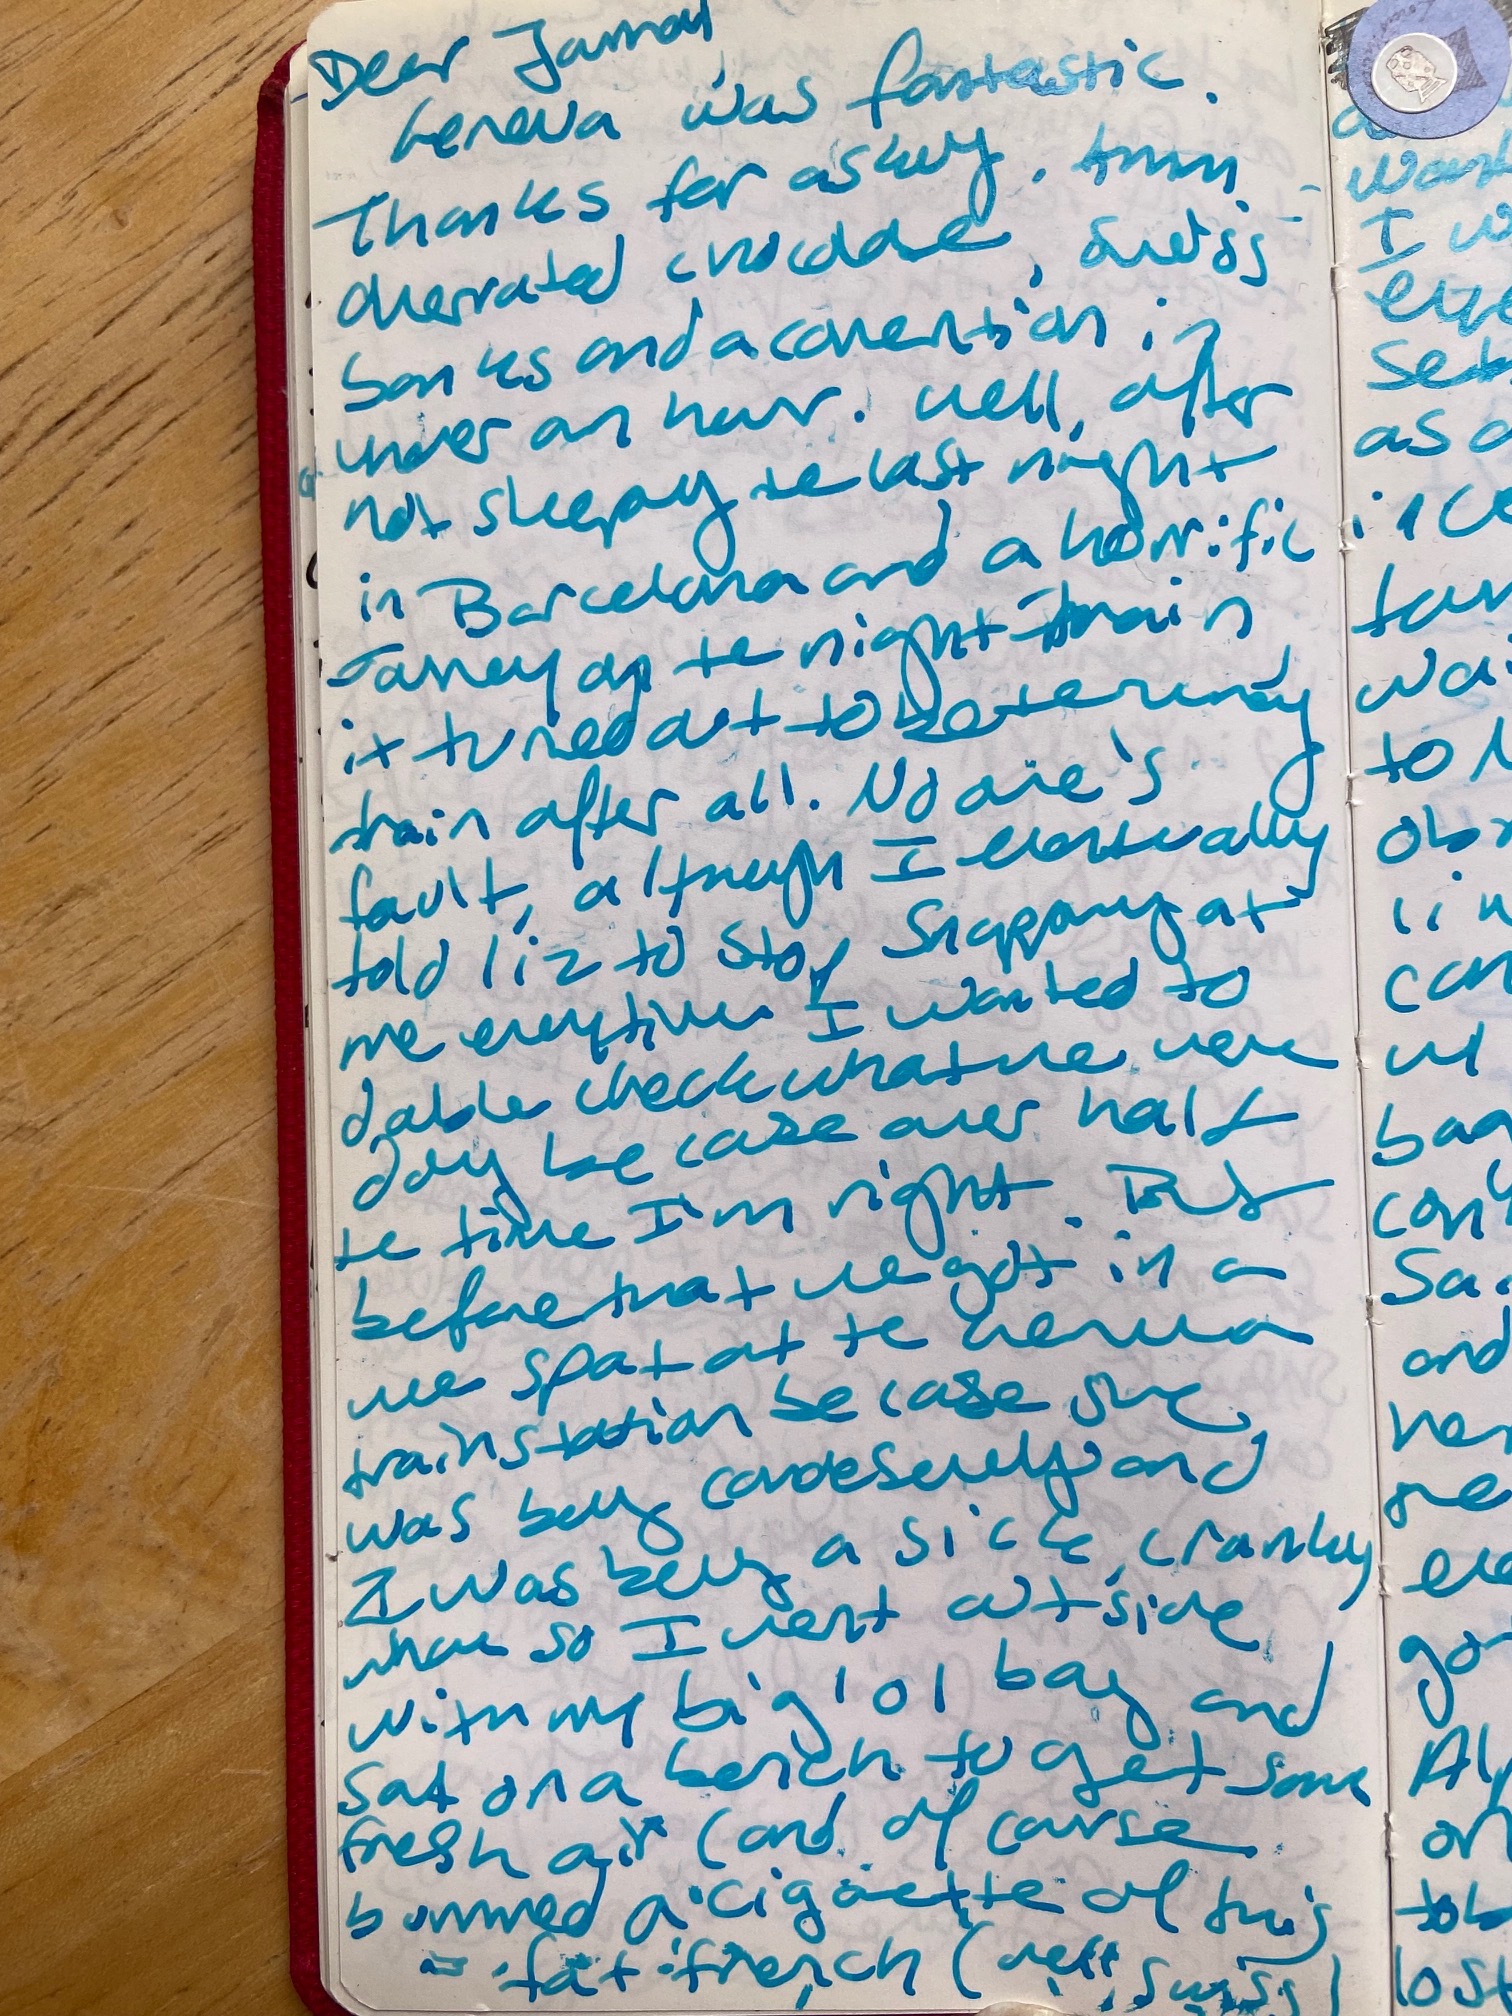 Dear Jamal
Geneva was fantastic.
Thanks for asking. Hmm -
overrated chocolate, Swiss
banks and a convention in
under an hour. Well, after
not sleeping the last night
in Barcelona and a horrific
journey on the night train
it turned out to be the wrong
train after all. No one's
fault, although I eventually
told Liz to stop snapping at
me everytime I wanted to
double check what we were
doing because over half
the time I'm right. But
before that we got in a
wee spat at the Geneva
train station because she
was being condescending and
I was being a sick, cranky
whore so I went outside
with my big 'ol bag and
sat on a bench to get some
fresh air (and of course
bummed a cigarette of this
fat french (well, swiss)
I
as a
to
and
on
lost